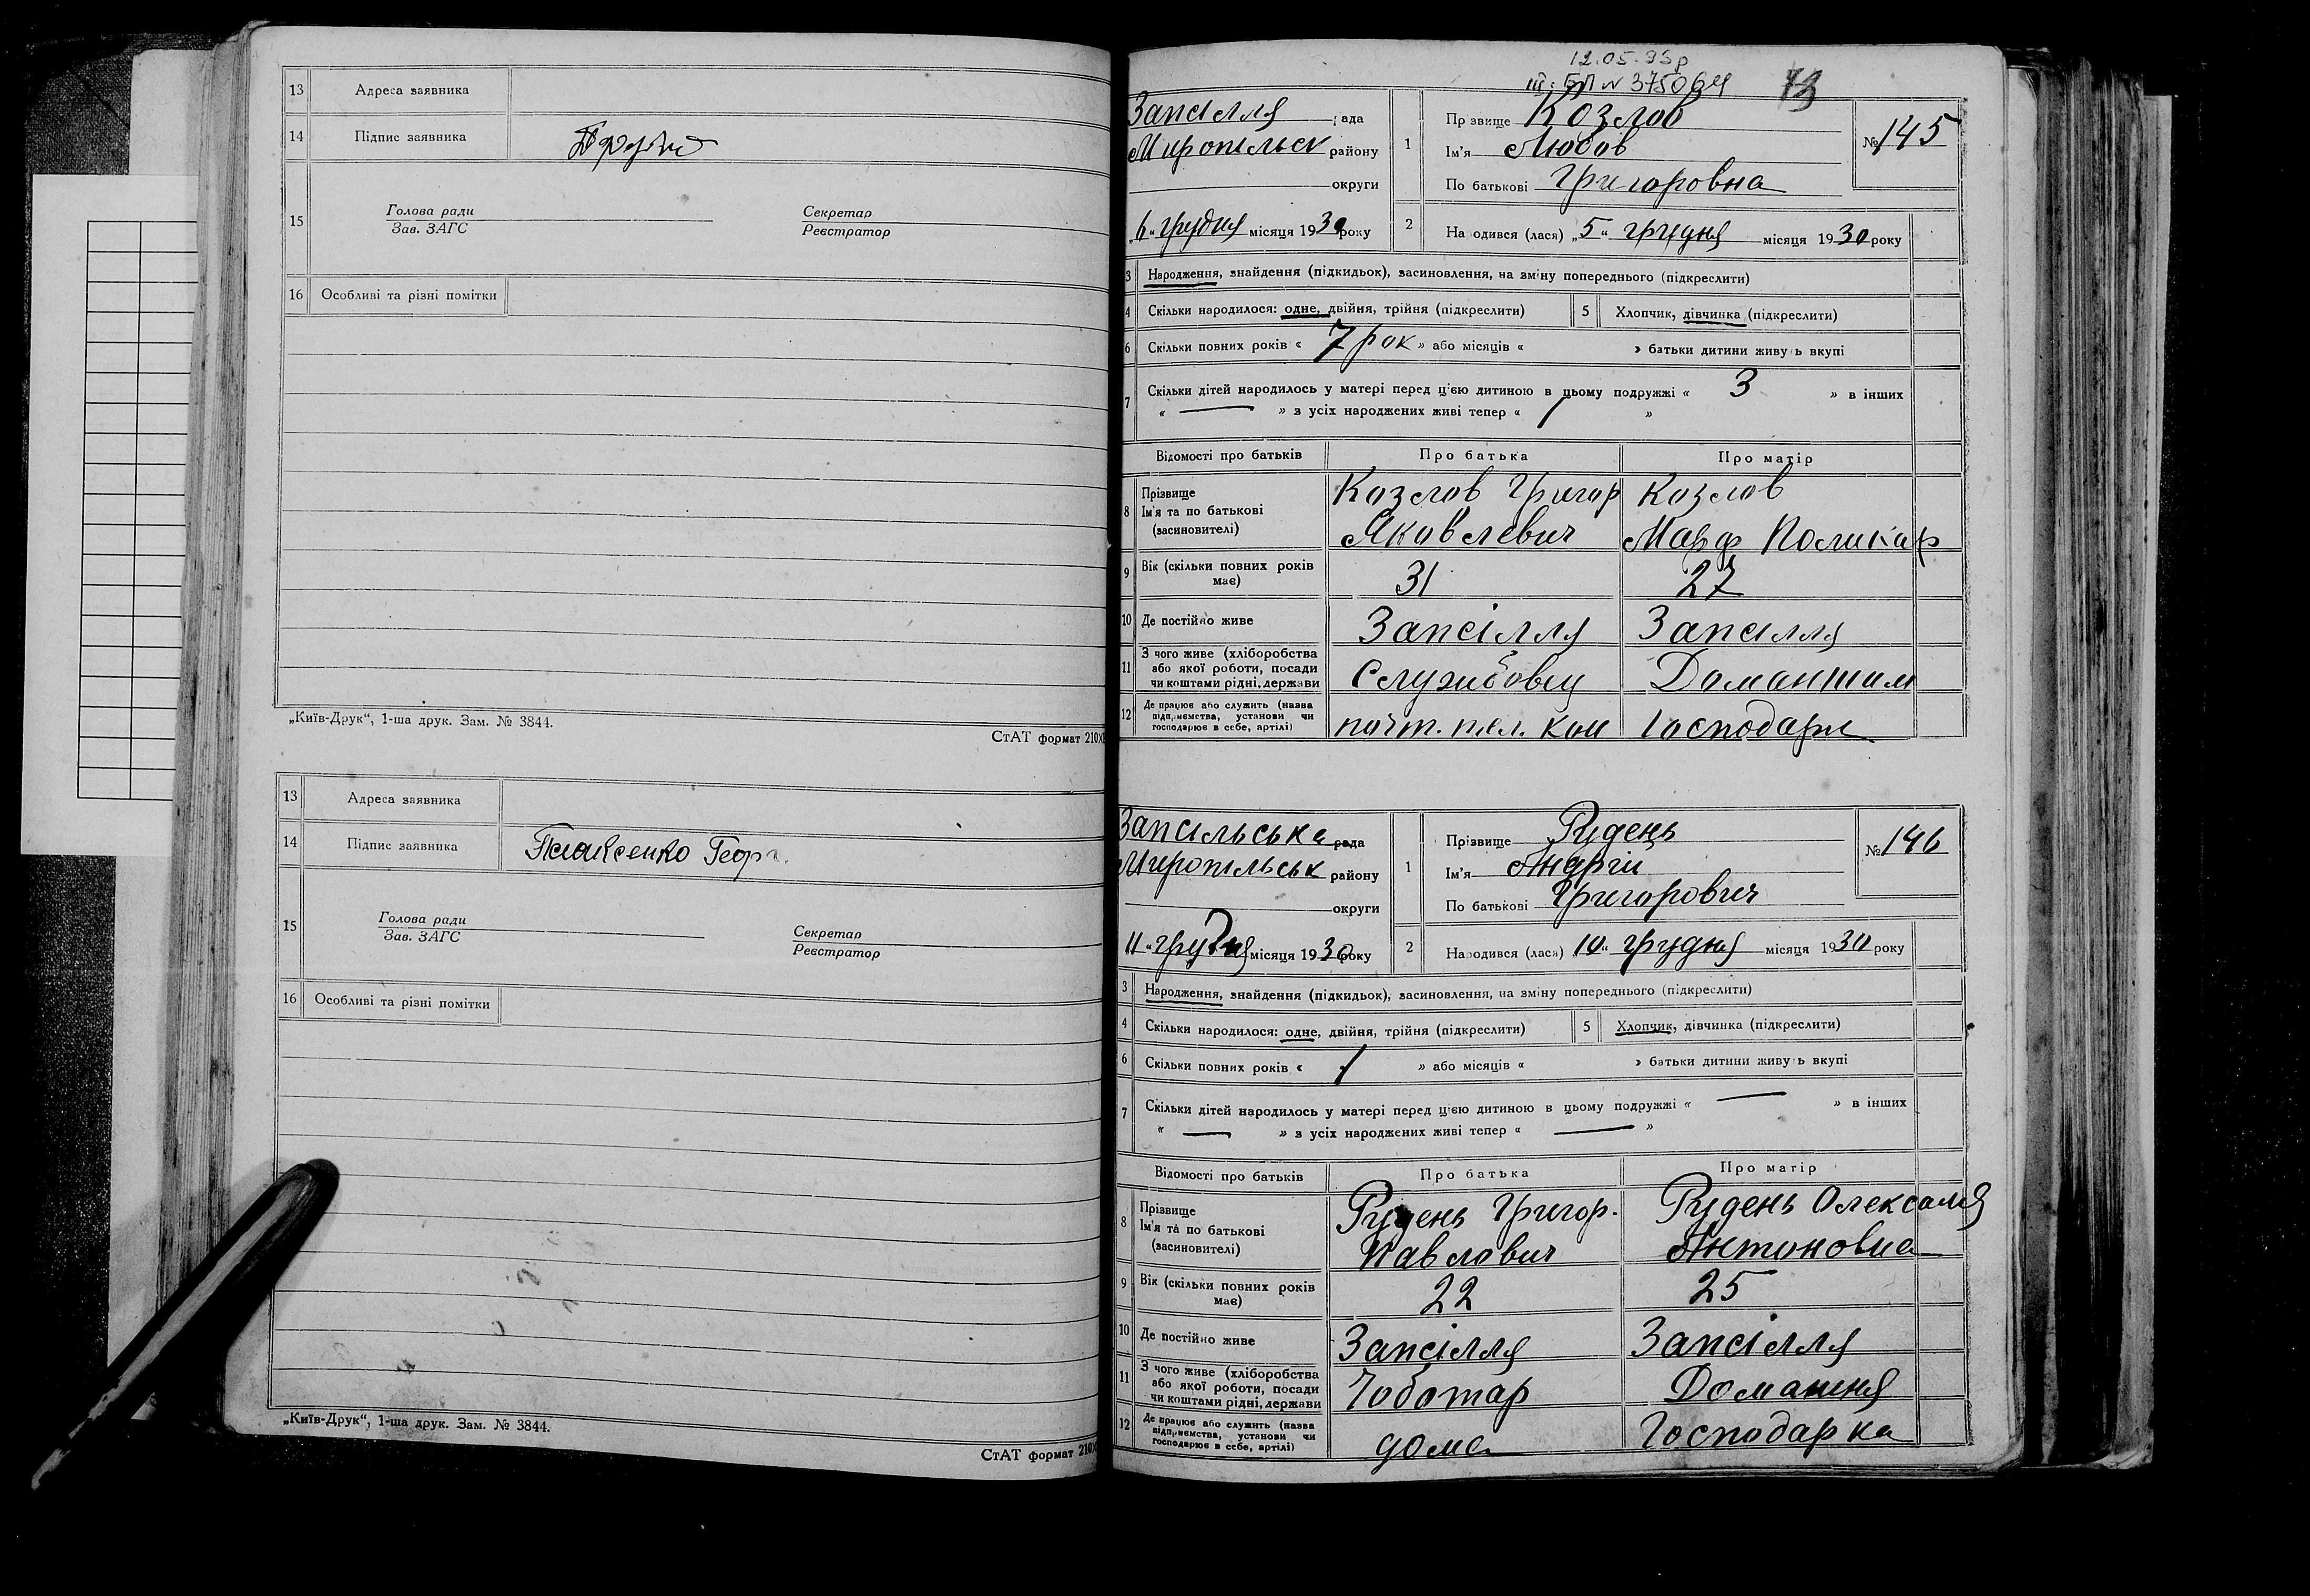 13 Адреса заявника
14 Підпис заявника
15 Голова ради Секретар
Зав. ЗАГС Реєстратор
16 Особливі та різні помітки
„Київ-Друк“, 1-ша друк. Зам. № 3844.
СтАТ формат 210X
13 Адреса заявника
14 Підпис заявника Геор
15 Голова ради Секретар
Зав. ЗАГС Реєстратор
16 Особливі та різні помітки
„Київ-Друк“, 1-ша друк. Зам. № 3844.
СтАТ формат 210X
12.05.93р
ІІІ: БП № 375064 73
Запсілля рада
Миропільск району
округи
„6“ грудня місяця 1930 року
1 Прізвище Козлов
Ім'я Любов
По батькові Григоровна
№ 145
2 Народився (лася) „5“ грудня місяця 1930 року
3 Народження, знайдення (підкидьок), засиновлення, на зміну попереднього (підкреслити)
4 Скільки народилося: одне, двійня, трійня (підкреслити) 5 Хлопчик, дівчинка (підкреслити)
6 Скільки повних років « 7 рок » або місяців « » батьки дитини живуть вкупі
7 Скільки дітей народилось у матері перед цією дитиною в цьому подружжі « 3 » в інших
« — » з усіх народжених живі тепер « 1 »
Відомості про батьків Про батька Про матір
8 Прізвище Ім'я та по батькові (засиновителі) Козлов Григор Козлов
Яковлевич Марф Поликар
9 Вік (скільки повних років має) 31 27
10 Де постійно живе Запсілля Запсілля
11 З чого живе (хліборобства або якої роботи, посади чи коштами рідні, держави Службовец
12 Де працює або служить (назва підприємства, установи чи господарює в себе, артілі) почт. тел. кон Господари
Запсільська рада
Миропільськ району
округи
11 “ грудня місяця 1930 року
1 Прізвище Рудень
Ім'я Андрій
По батькові Григорович
№ 146
2 Народився (лася) „10“ грудня місяця 1930 року
3 Народження, знайдення (підкидьок), засиновлення, на зміну попереднього (підкреслити)
4 Скільки народилося: одне, двійня, трійня (підкреслити) 5 Хлопчик, дівчинка (підкреслити)
6 Скільки повних років « 1 » або місяців « » батьки дитини живуть вкупі
7 Скільки дітей народилось у матері перед цією дитиною в цьому подружжі « — » в інших
« — » з усіх народжених живі тепер « — »
Відомості про батьків Про батька Про матір
8 Прізвище Ім'я та по батькові (засиновителі) Рудень Григор. Рудень
Павлович Антоновна
9 Вік (скільки повних років має) 22 25
10 Де постійно живе Запсілля Запсілля
11 З чого живе (хліборобства або якої роботи, посади чи коштами рідні, держави Чоботар Домашня
12 Де працює або служить (назва підприємства, установи чи господарює в себе, артілі) дома Господарка